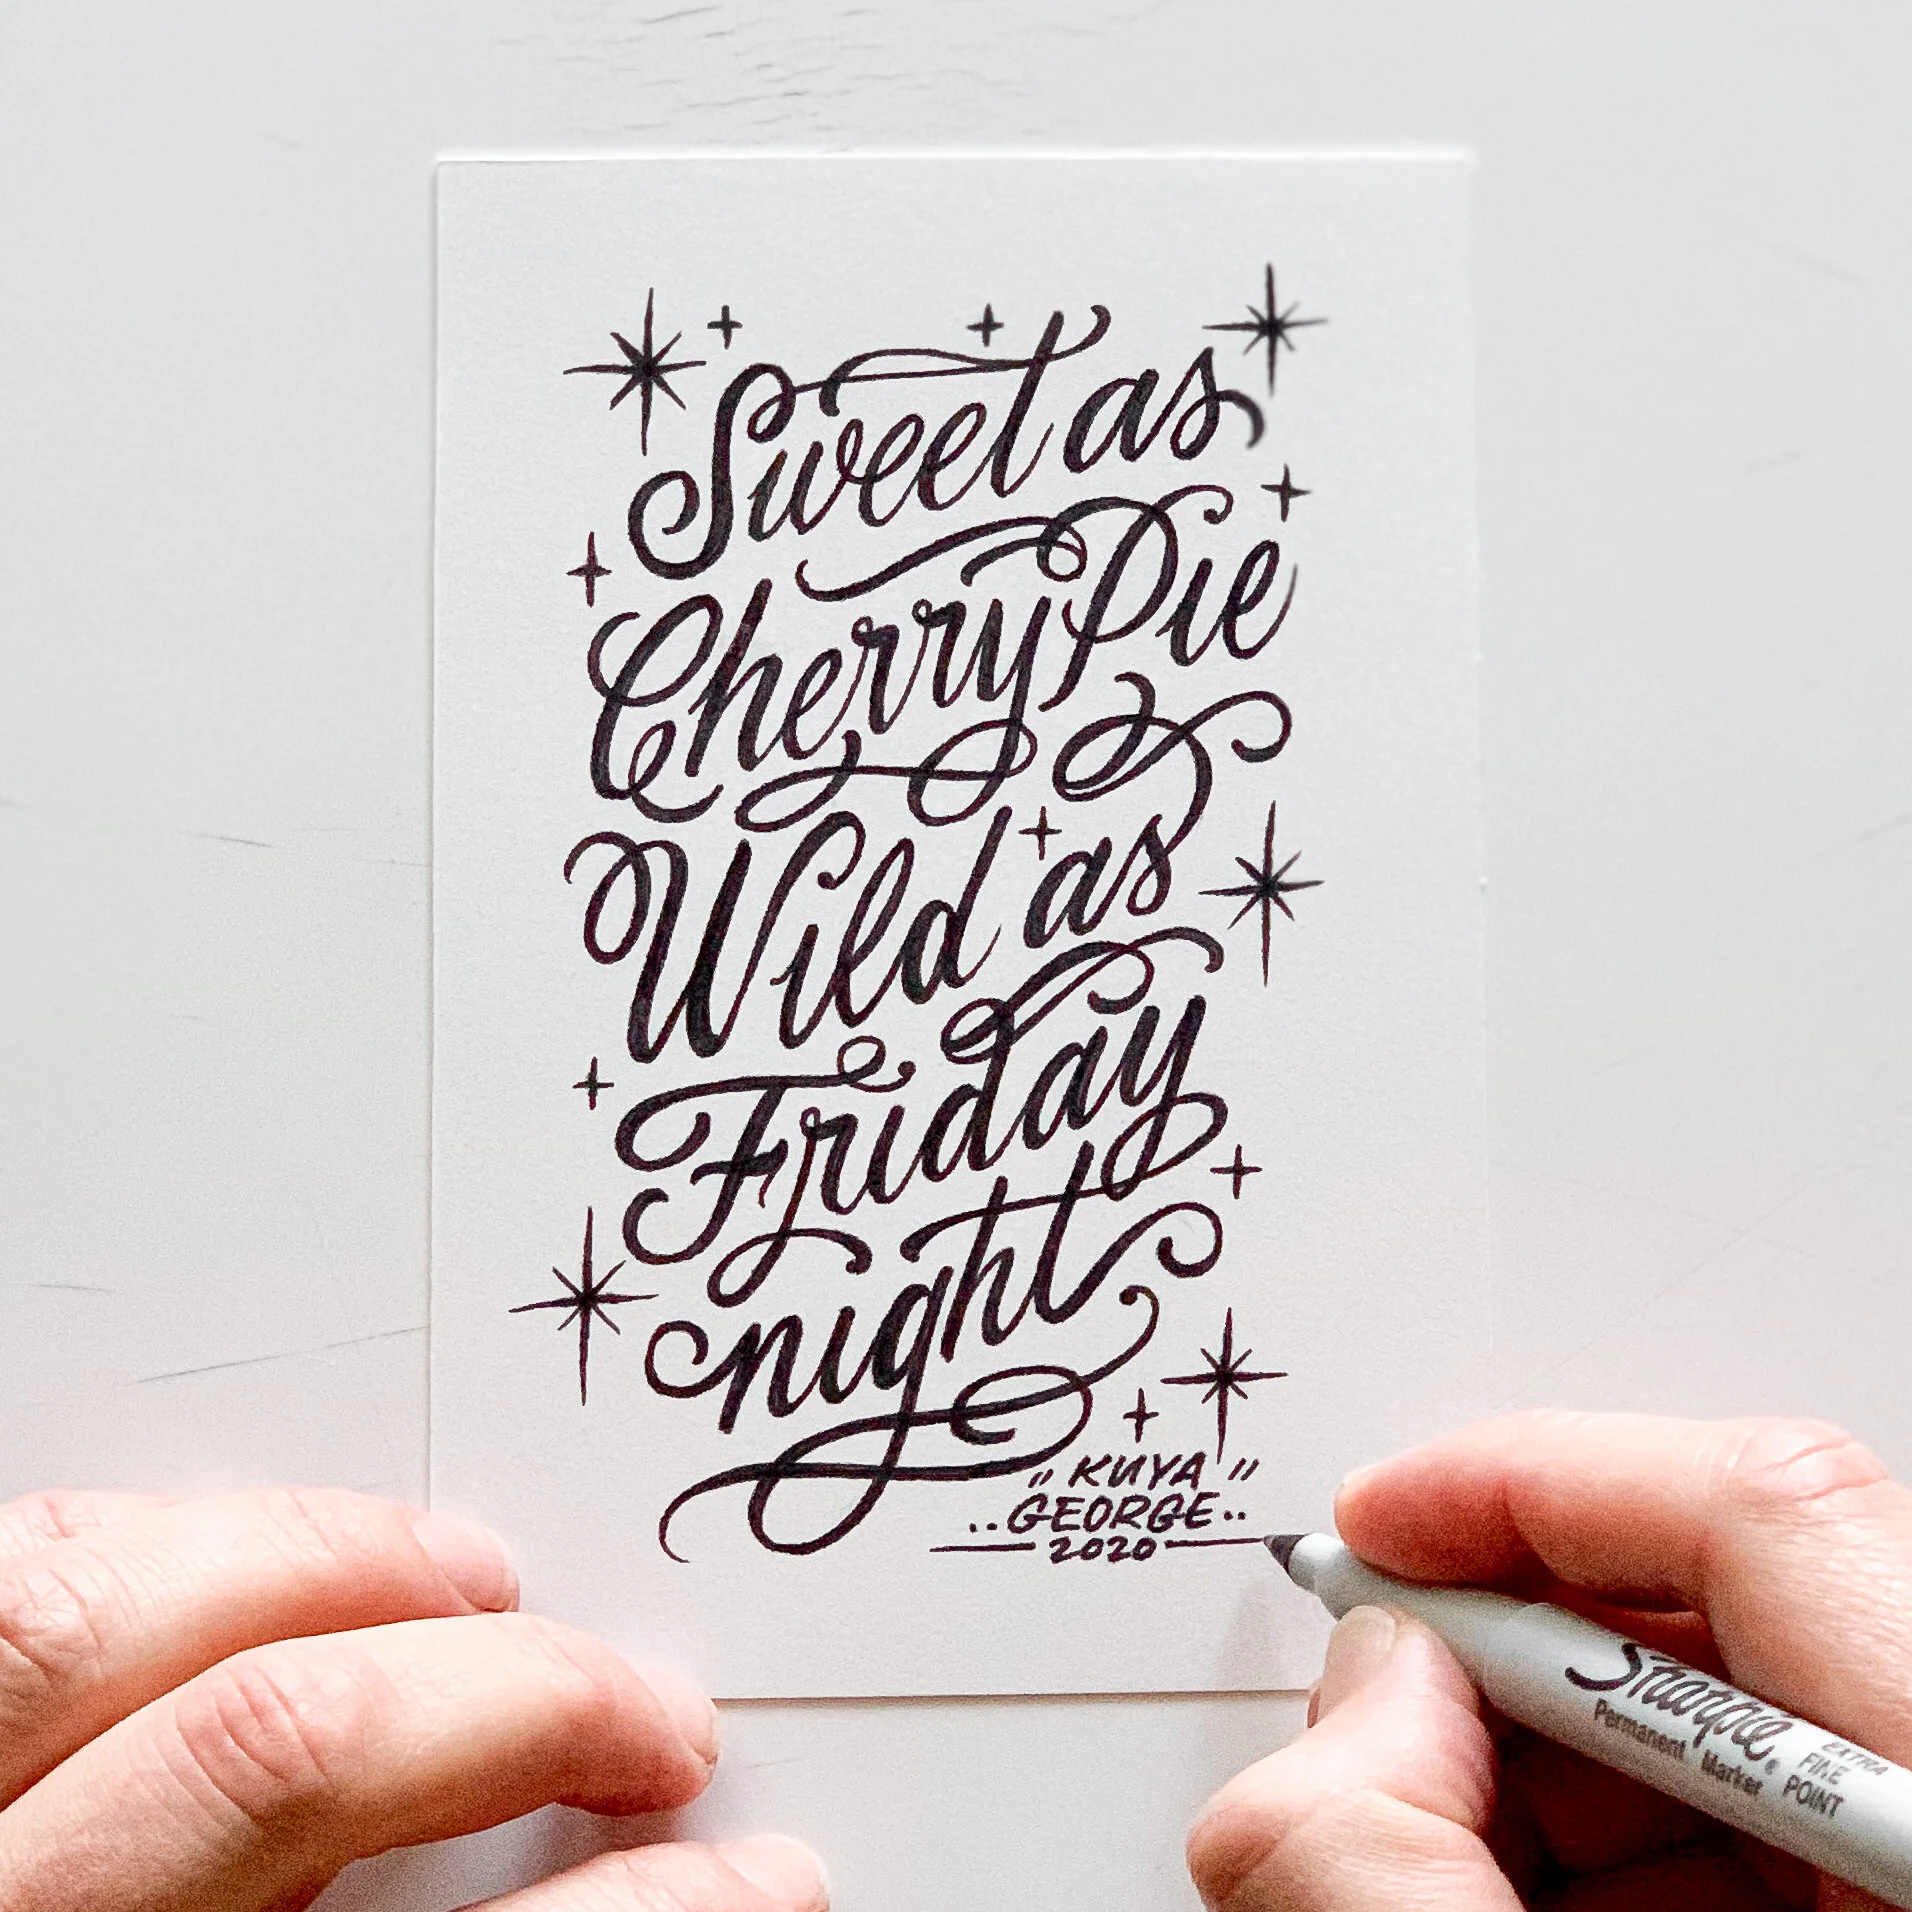 Sweet as
Cherry Pie
Wild as
Friday
night
"KUYA"
..GEORGE..
2020
Sharpie®
Permanent Marker
EXTRA
FINE
POINT